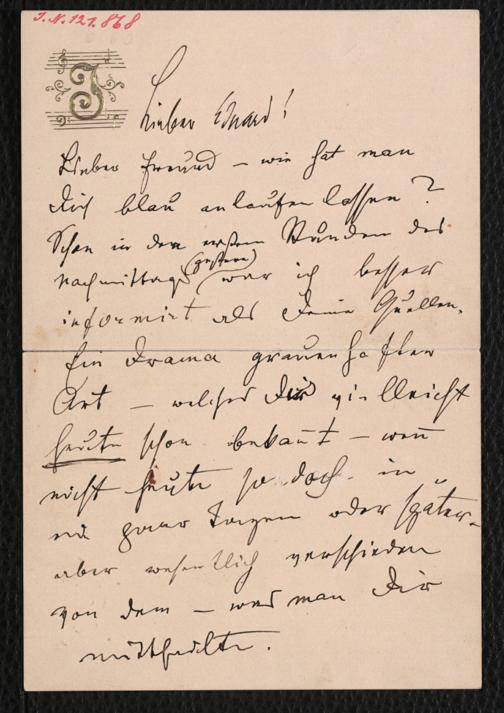 J. N. 121.868
J
Lieber Eduard!
Lieber Freund – wie hat man
Dich blau anlaufen lassen?
Schon in den ersten Stunden des
Nachmittags (gestern) war ich besser
informirt als Deine Quellen.
Ein Drama grauenhafter
Art – welches Dir vielleicht
heute schon bekannt – wenn
nicht heute so doch in
ein paar Tagen oder später –
aber wesentlich verschieden
von dem – was man Dir
mittheilte.